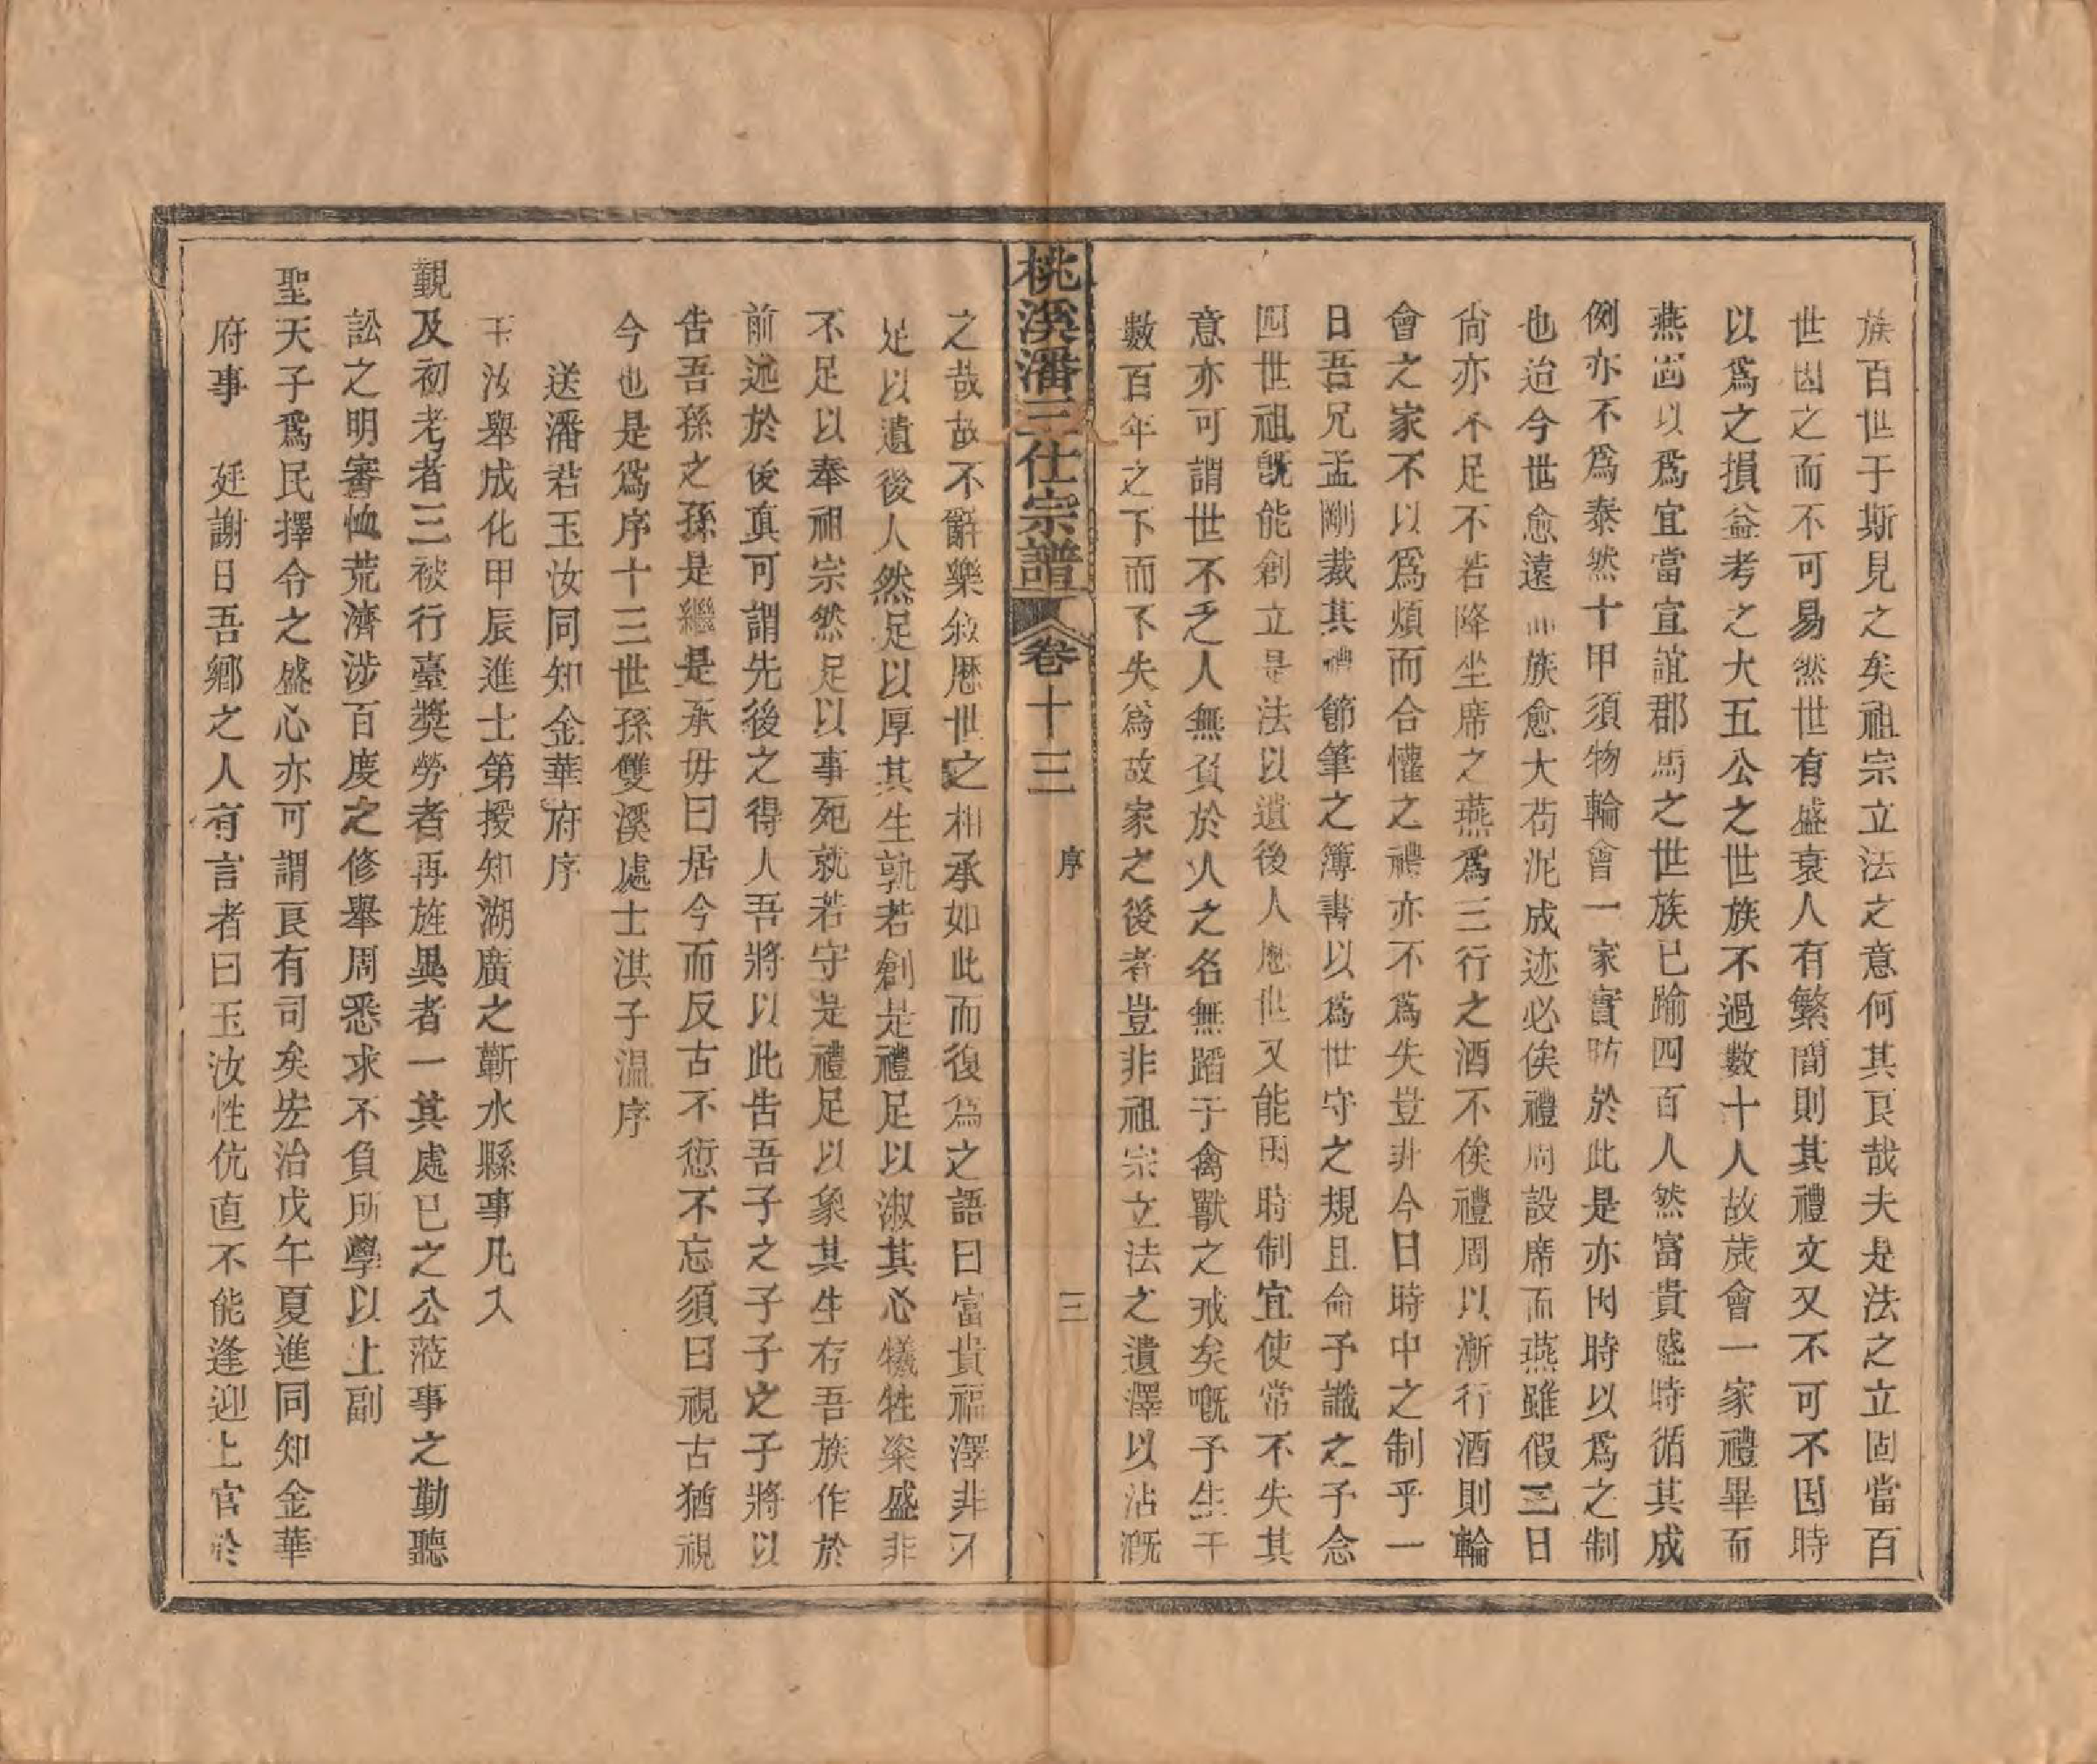 族百世于斯見之矣祖宗立法之意何其良哉夫是法之立固當百
世因之而不可易然世有盛衰人有繁簡則其禮文又不可不因時
以爲之損益考之大五公之世族不過數十人故歲會一家禮畢而
燕固以爲宜當宣誼郡馬之世族已踰四百人然富貴盛時循其成
例亦不爲泰然十甲須物輪會一家實昉於此是亦因時以爲之制
也迨今世愈遠而族愈大苟泥成迹必俟禮周設席而燕雖假三日
尚亦不足不若降坐席之燕爲三行之酒不俟禮周以漸行酒則輪
會之家不以爲煩而合懽之禮亦不爲失豈非今日時中之制乎一
日吾兄孟剛裁其禮節筆之簿書以爲世守之規且命予識之予念
四世祖既能創立是法以遺後人歷世又能因時制宜使常不失其
意亦可謂世不乏人無負於人之名無蹈于禽獸之戒矣嘅予生千
數百年之下而不失爲故家之後者豈非祖宗立法之遺澤以沾溉
桃溪潘三仕宗譜 卷十三 序 三
之哉故不辭樂敘歷世之相承如此而復爲之語曰富貴福澤非不
足以遺後人然足以厚其生孰若創是禮足以淑其心犧牲粢盛非
不足以奉祖宗然足以事死就若守是禮足以象其生存吾族作於
前述於後真可謂先後之得人吾將以此告吾子之子子之子將以
告吾孫之孫是繼是承毋曰居今而反古不愆不忘須曰視古猶視
今也是爲序十三世孫雙溪處士淇子温序
送潘君玉汝同知金華府序
玉汝舉成化甲辰進士第授知湖廣之蘄水縣事凡入
覲及初考者三被行臺獎勞者再旌異者一其處已之公蒞事之勤聽
訟之明審恤荒濟涉百度之修舉周悉求不負所學以上副
聖天子爲民擇令之盛心亦可謂良有司矣宏治戊午夏進同知金華
府事 廷謝日吾鄉之人有言者曰玉汝性伉直不能逢迎上官於